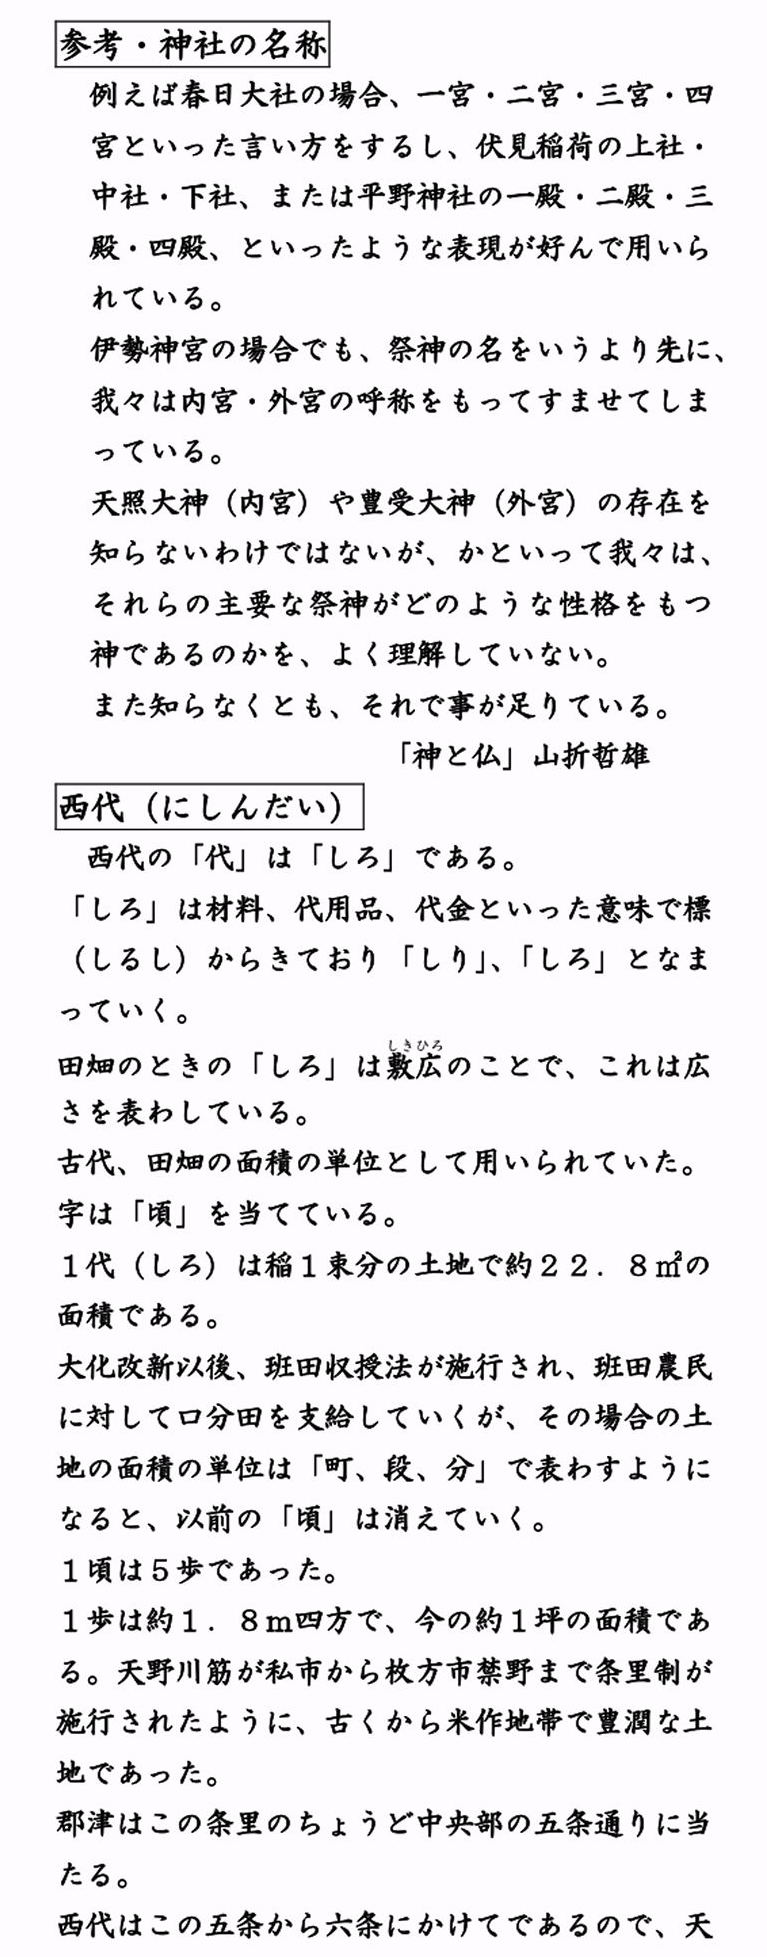 参考・神社の名称
例えば春日大社の場合、一宮・二宮・三宮・四
宮といった言い方をするし、伏見稲荷の上社・
中社・下社、または平野神社の一殿・二殿・三
殿・四殿、といったような表現が好んで用いら
れている。
伊勢神宮の場合でも、祭神の名をいうより先に、
我々は内宮・外宮の呼称をもってすませてしま
っている。
天照大神（内宮）や豊受大神（外宮）の存在を
知らないわけではないが、かといって我々は、
それらの主要な祭神がどのような性格をもつ
神であるのかを、よく理解していない。
また知らなくとも、それで事が足りている。
「神と仏」山折哲雄
西代（にしんだい）
西代の「代」は「しろ」である。
「しろ」は材料、代用品、代金といった意味で標
（しるし）からきており「しり」、「しろ」となま
っていく。
しきひろ
田畑のときの「しろ」は敷広のことで、これは広
さを表わしている。
古代、田畑の面積の単位として用いられていた。
字は「頃」を当てている。
１代（しろ）は稲１束分の土地で約２２．８㎡の
面積である。
大化改新以後、班田収授法が施行され、班田農民
に対して口分田を支給していくが、その場合の土
地の面積の単位は「町、段、分」で表わすように
なると、以前の「頃」は消えていく。
１頃は５歩であった。
１歩は約１．８ｍ四方で、今の約１坪の面積であ
る。天野川筋が私市から枚方市禁野まで条里制が
施行されたように、古くから米作地帯で豊潤な土
地であった。
郡津はこの条里のちょうど中央部の五条通りに当
たる。
西代はこの五条から六条にかけてであるので、天